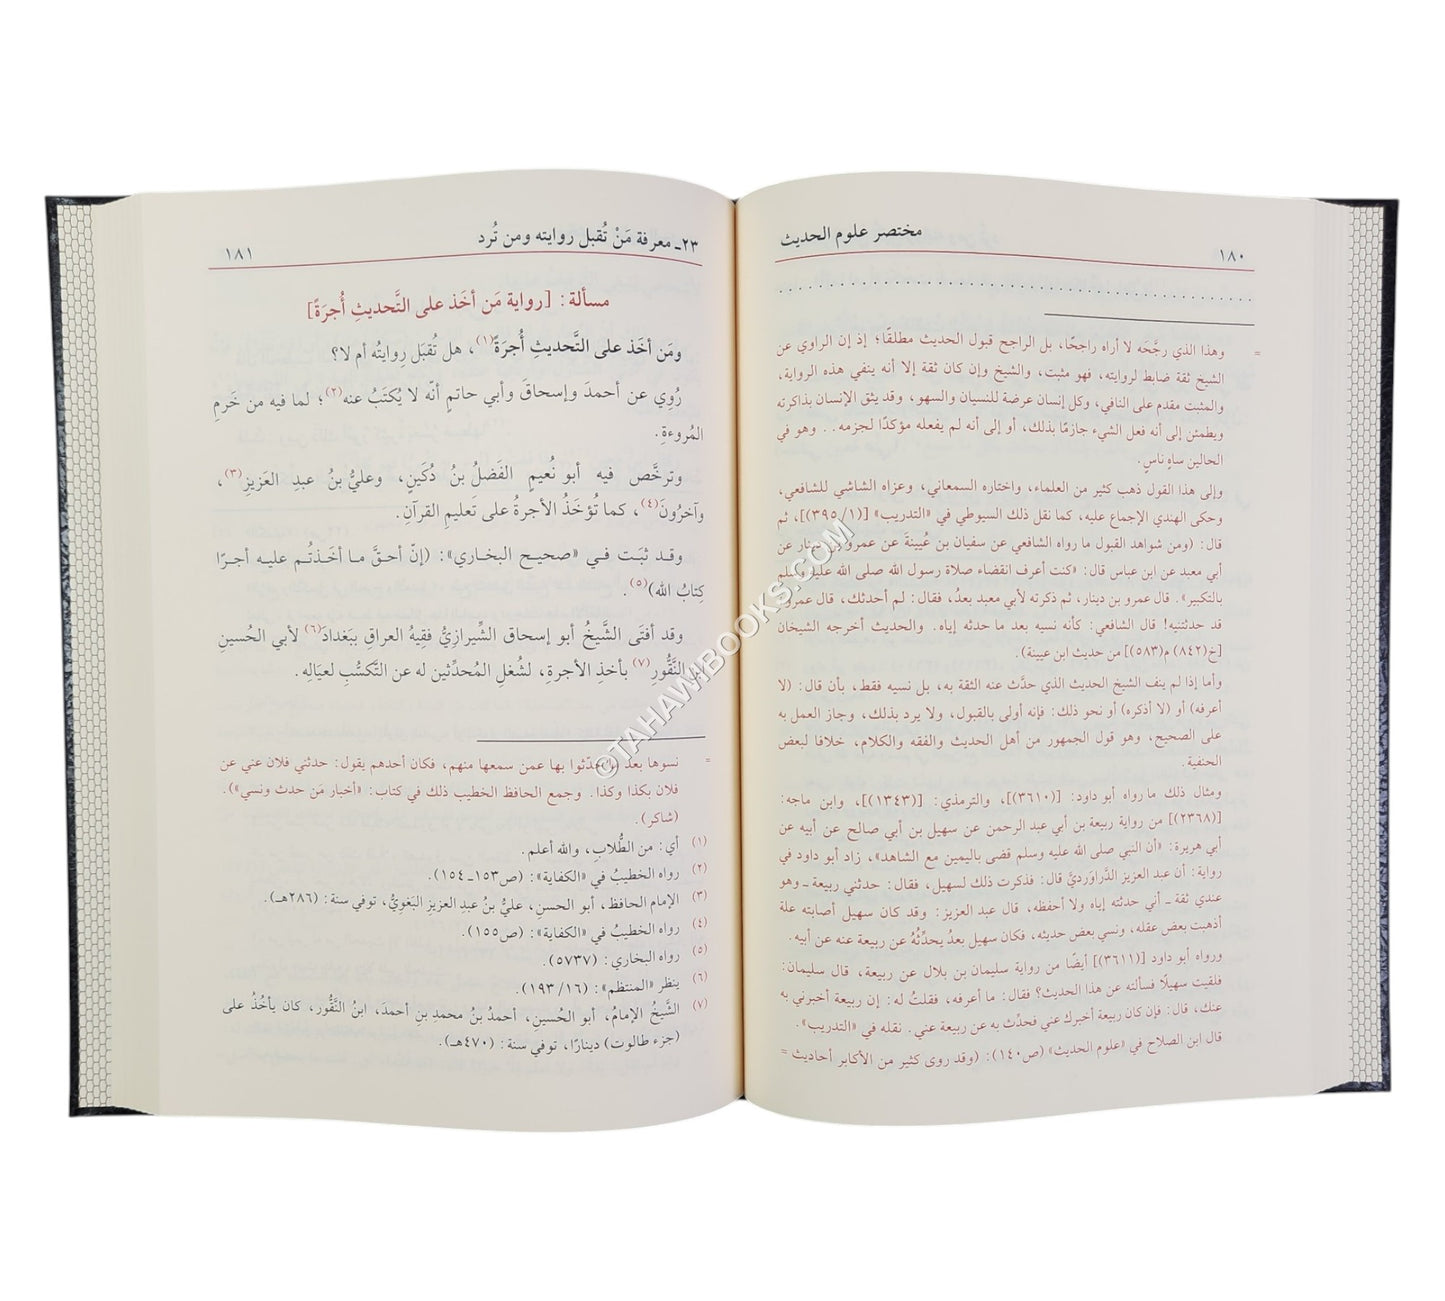 مختصر علوم الحديث
١٨٠
= وهذا الذي رجَّحَه لا أراه راجحًا، بل الراجح قبول الحديث مطلقًا؛ إذ إن الراوي عن
الشيخ ثقة ضابط لروايته، فهو مثبت، والشيخ وإن كان ثقة إلا أنه ينفي هذه الرواية،
والمثبت مقدم على النافي، وكل إنسان عرضة للنسيان والسهو، وقد يثق الإنسان بذاكرته
ويطمئن إلى أنه فعل الشيء جازمًا بذلك، أو إلى أنه لم يفعله مؤكدًا لجزمه.. وهو في
الحالين ساهٍ ناسٍ.
وإلى هذا القول ذهب كثير من العلماء، واختاره السمعاني، وعزاه الشاشي للشافعي،
وحكى الهندي الإجماع عليه، كما نقل ذلك السيوطي في «التدريب» [(١/ ٣٩٥)]، ثم
قال: (ومن شواهد القبول ما رواه الشافعي عن سفيان بن عُيينةَ عن عمرو بن دينار عن
أبي معبد عن ابن عباس قال: «كنت أعرف انقضاء صلاة رسول الله صلى الله عليه وسلم
بالتكبير». قال عمرو بن دينار، ثم ذكرته لأبي معبد بعدُ، فقال: لم أحدثك، قال عمرو:
قد حدثتنيه! قال الشافعي: كأنه نسيه بعد ما حدثه إياه. والحديث أخرجه الشيخان
[خ(٨٤٢) م(٥٨٣)] من حديث ابن عيينة).
وأما إذا لم ينف الشيخ الحديث الذي حدَّث عنه الثقة به، بل نسيه فقط، بأن قال: (لا
أعرفه) أو (لا أذكره) أو نحو ذلك: فإنه أولى بالقبول، ولا يرد بذلك، وجاز العمل به
على الصحيح، وهو قول الجمهور من أهل الحديث والفقه والكلام، خلافا لبعض
الحنفية.
ومثال ذلك ما رواه أبو داود: [(٣٦١٠)]، والترمذي: [(١٣٤٣)]، وابن ماجه:
[(٢٣٦٨)] من رواية ربيعة بن أبي عبد الرحمن عن سهيل بن أبي صالح عن أبيه عن
أبي هريرة: «أن النبي صلى الله عليه وسلم قضى باليمين مع الشاهد»، زاد أبو داود في
رواية: أن عبد العزيز الدَّراوَرديَّ قال: فذكرت ذلك لسهيل، فقال: حدثني ربيعة ـ وهو
عندي ثقة ـ أني حدثته إياه ولا أحفظه، قال عبد العزيز: وقد كان سهيل أصابته علة
أذهبت بعض عقله، ونسي بعض حديثه، فكان سهيل بعدُ يحدِّثُهُ عن ربيعة عنه عن أبيه.
ورواه أبو داود [(٣٦١١)] أيضًا من رواية سليمان بن بلال عن ربيعة، قال سليمان:
فلقيت سهيلًا فسألته عن هذا الحديث؟ فقال: ما أعرفه، فقلتُ له: إن ربيعة أخبرني به
عنك، قال: فإن كان ربيعة أخبرك عني فحدِّث به عن ربيعة عني. نقله في «التدريب».
قال ابن الصلاح في «علوم الحديث» (ص١٤٠): (وقد روى كثير من الأكابر أحاديث =
٢٣ـ معرفة مَنْ تُقبل روايته ومن تُرد
١٨١
مسألة: [رواية مَن أخَذ على التَّحديثِ أُجرَةً]
ومَن أخَذ على التَّحديثِ أُجرَةً(١)، هل تُقبَل رِوايتُه أم لا؟
رُوِي عن أحمدَ وإسحاقَ وأبي حاتمٍ أنّه لا يُكتَبُ عنه(٢)؛ لما فيه من خَرمِ
المُروءةِ.
وترخَّص فيه أبو نُعيمٍ الفَضلُ بنُ دُكَينٍ، وعليُّ بنُ عبدِ العَزيزِ(٣)،
وآخرُونَ(٤)، كما تُؤخَذُ الأجرةُ على تَعليمِ القرآنِ.
وقد ثبَت في «صحيح البخاري»: (إنّ أحقَّ ما أخَذتُم عليه أجرًا
كِتابُ الله)(٥).
وقد أفتَى الشَّيخُ أبو إسحاق الشِّيرازِيُّ فقِيهُ العراقِ ببَغدادَ(٦) لأبي الحُسينِ
ابنِ النَّقُّورِ(٧) بأخذِ الأجرةِ، لشُغلِ المُحدِّثين له عن التَّكسُّبِ لعيَالِه.
= نسوها بعد ما حدّثوا بها عمن سمعها منهم، فكان أحدهم يقول: حدثني فلان عني عن
فلان بكذا وكذا. وجمع الحافظ الخطيب ذلك في كتاب: «أخبار مَن حدث ونسي»).
(شاكر).
(١) أي: من الطُّلابِ، والله أعلم.
(٢) رواه الخطيبُ في «الكفاية»: (ص١٥٣ـ١٥٤).
(٣) الإمام الحافظ، أبو الحسنِ، عليُّ بنُ عبدِ العزيزِ البَغوِيُّ، توفي سنة: (٢٨٦هـ).
(٤) رواه الخطيبُ في «الكفاية»: (ص١٥٥).
(٥) رواه البخاري: (٥٧٣٧).
(٦) ينظر «المنتظم»: (١٦/ ١٩٣).
(٧) الشَّيخُ الإمامُ، أبو الحُسينِ، أحمدُ بنُ محمدِ بن أحمدَ، ابنُ النَّقُّور، كان يأخُذُ على
(جزء طالوت) دينارًا، توفي سنة: (٤٧٠هـ).
©TAHAWIBOOKS.COM